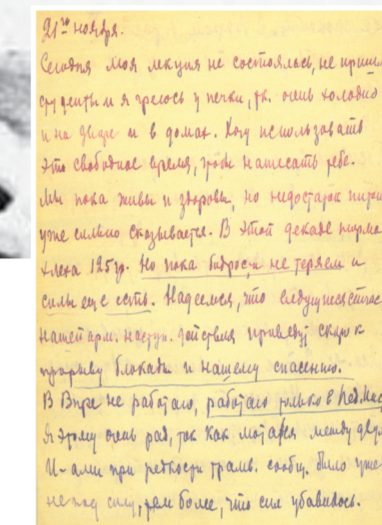 21го ноября.
Сегодня моя лекция не состоялась, не пришли
студенты и я греюсь у печки, т.к. очень холодно
и на дворе и в домах. Хочу использовать
это свободное время, чтобы написать тебе.
Мы пока живы и здоровы, но недостаток питан
уже сильно сказывается. В этой декаде норма
хлеба 125 гр. Но пока бодрости не теряем и
силы еще есть. Надеемся, что
нашей арм. наступ. действия приведут скоро к
прорыву блокады и нашему спасению.
В не работаю, работаю только в
Я этому очень рад, так как мотаться между двумя
И-ами при редкости трамв. сообщ. было уже
не под силу, тем более, что сил убавилось.